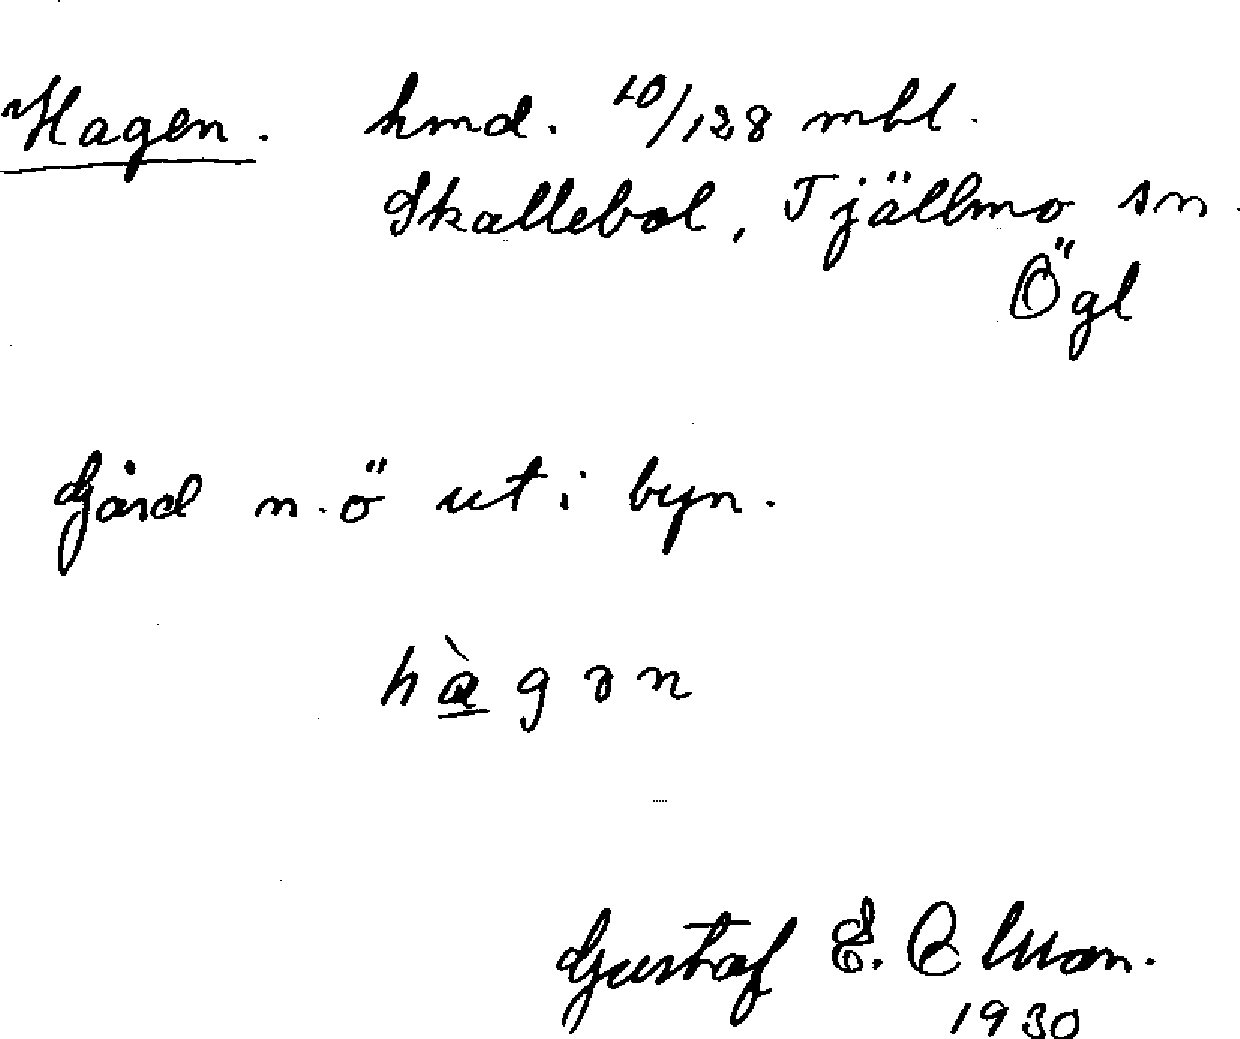 Hagen. hmd. 10/128 mbl.
Skallebol, Tjällmo sn.
Ögl
Gård n.ö ut i byn.
hàgən
Gustaf E.
1930